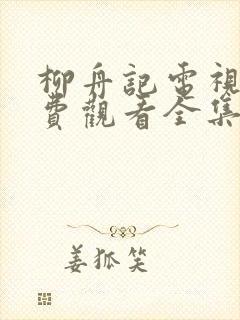 柳舟記電視
費觀看全集
姜狐笑